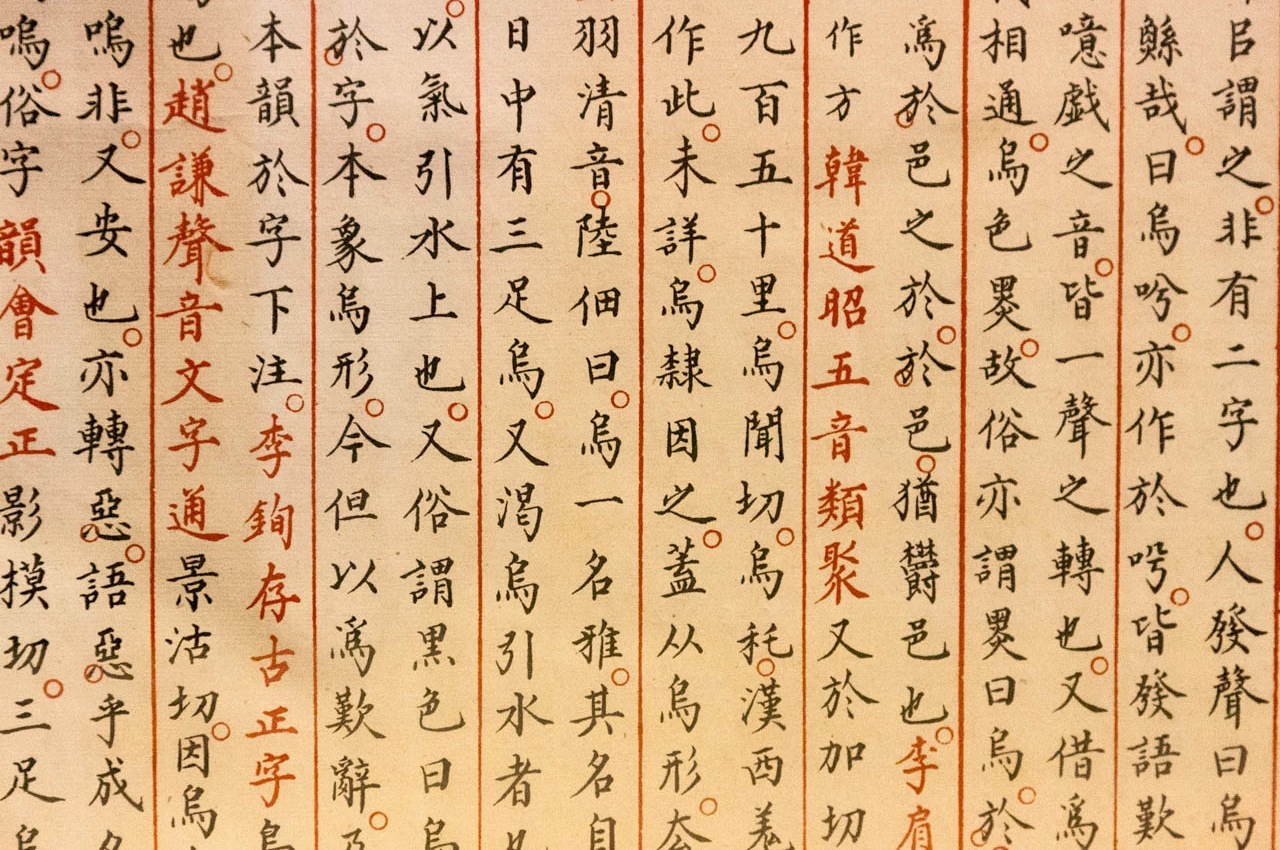 臣謂之。非有二字也。人發聲曰烏
鯀哉。曰烏吟。亦作於呺。皆發語歎
噫戲之音。皆一聲之轉也。又借爲
相通。烏色黑。故俗亦謂黑曰烏。於
爲於邑之於。於邑。猶鬱邑也。李肩
作方韓道昭五音類聚又於加切
九百五十里。烏聞切。烏秅。漢西羌
作此。未詳。烏隸因之。蓋从烏形。
羽清音。陸佃曰。烏一名雅。其名自
日中有三足烏。又渴烏引水者
以氣引水上也。又俗謂黑色曰烏
於字。本象烏形。今但以爲歎辭。
本韻於字下注。李銁存古正字烏
也。趙謙聲音文字通景沽切。因烏
嗚非。又安也。亦轉惡。語惡乎成名
嗚。俗字韻會定正影模切。三足烏